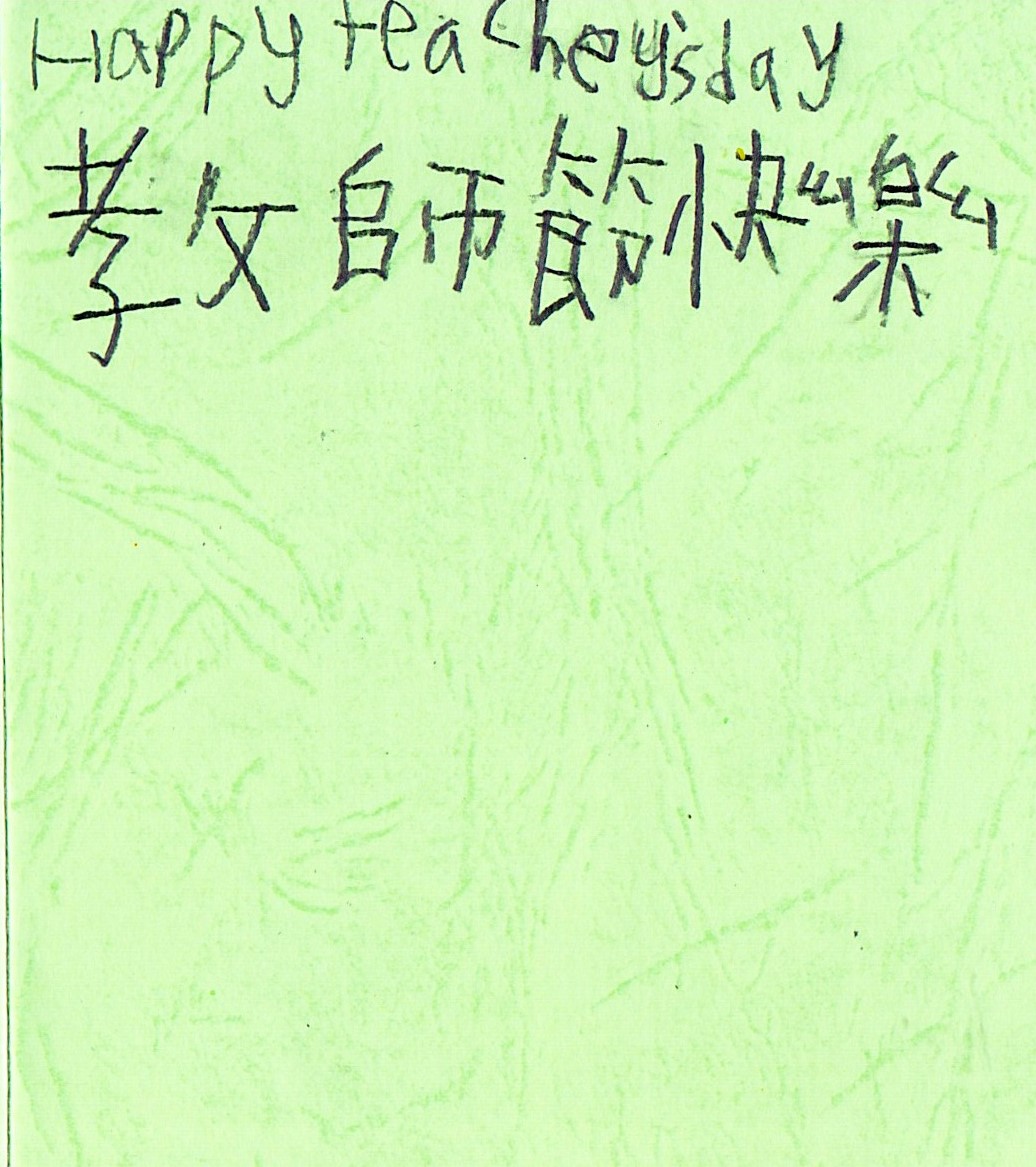 Happy teacher's day
教師節快樂